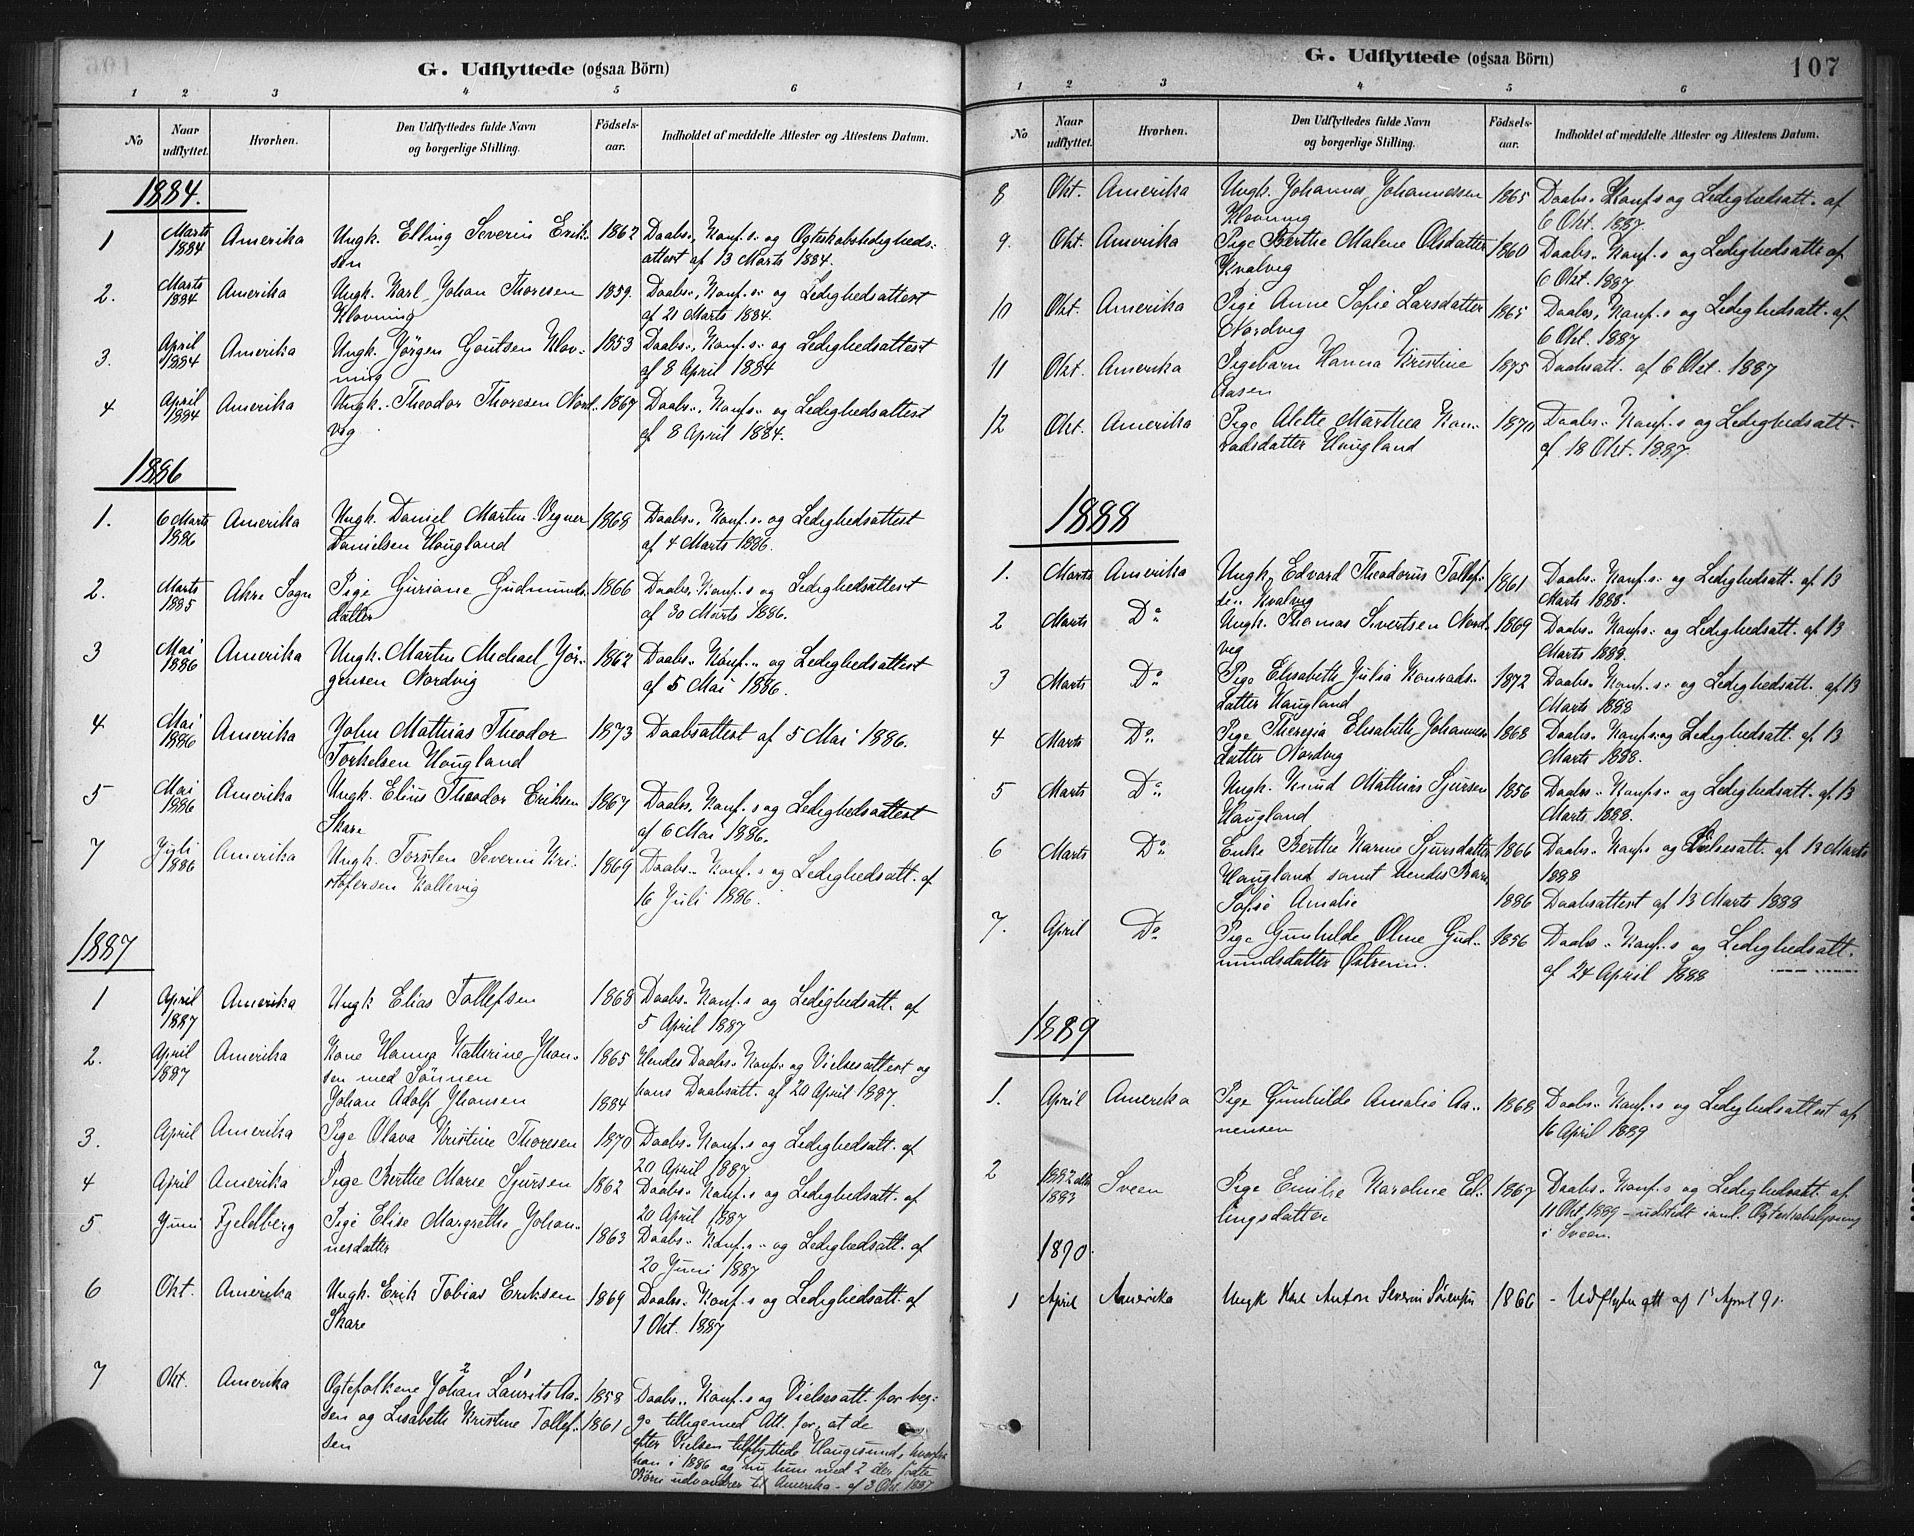 G. Udflyttede (ogsaa Börn)
1 2 3 4 5 6
No Naar udflyttet. Hvorhen. Den Udflyttedes fulde Navn og borgerlige Stilling. Födsels-aar. Indholdet af meddelte Attester og Attestens Datum.
1884.
1 Marts 1884 Amerika Ungk. Elling Severin Erik- 1862 Daabs-, Konf.s- og Ægteskabsledigheds-
sen attest af 13 Marts 1884.
2. Marts 1884 Amerika Ungk. Karl Johan Thoresen 1859. Daabs-, Konf.s- og Ledighedsattest
Klovning af 21 Marts 1884.
3. April 1884 Amerika Ungk. Jörgen Goutsen Klov- 1853 Daabs-, Konf.s- og Ledighedsattest
ning af 8 April 1884
4 April 1884 Amerika Ungk. Theodor Thoresen Nord- 1867 Daabs-, Konf.s- og Ledighedsattest
vig af 8 April 1884.
1886
1. 6 Marts 1886 Amerika Ungk. Daniel Martin Vegner 1868 Daabs-, Konf.s- og Ledighedsattest
Danielsen Hougland af 4 Marts 1886.
2. Marts 1885 Akre Sogn Pige Guriane Gudmunds- 1866 Daabs-, Konf.s og Ledighedsattest
datter af 30 Marts 1886.
3 Mai 1886 Amerika Ungk. Martin Michael Jör- 1862 Daabs-, Konf.- og Ledighedsattest
gensen Nordvig af 5 Mai 1886.
4 Mai 1886 Amerika John Mathias Theodor 1873 Daabsattest af 5 Mai 1886.
Torkelsen Hougland
5 Mai 1886 Amerika Ungk. Elius Theodor Eriksen 1867 Daabs-, Konf.s og Ledighedsattest
Skare af 6 Mai 1886.
7 Juli 1886 Amerika Ungk. Torsten Severin Kri- 1869 Daabs-, Konf.s og Ledighedsatt. af
stofersen Kallevig 16 Juli 1886.
1887
1 April 1887 Amerika Ungk Elias Tollefsen 1868 Daabs-, Konf.s og Ledighedsatt. af
5 April 1887
2. April 1887 Amerika Kone Hanna Katherine Jhan- 1865 Hendes Daabs-, Konf.- og Vielsesattest og
sen med Sönnen hans Daabsatt. af 20 April 1887.
Johan Adolf Jhansen 1884
3. April Amerika Pige Olava Kristine Thoresen 1870 Daabs-, Konf.s og Ledighedsatt. af
20 April 1887
4 April Amerika Pige Berthe Marie Sjursen 1862 Daabs-, Konf.s og Ledighedsatt. af
20 April 1887
5 Juni Fjeldberg Pige Elise Margrethe Johan- 1863 Daabs-, Konf.s- og Ledighedsatt. af
nesdatter 20 Juni 1887
6 Okt. Amerika Ungk. Erik Tobias Eriksen 1869 Daabs-, Konf.s og Ledighedsatt. af
Skare 1 Okt. 1887
7 Okt. Amerika Ægtefolkene Johan Laurits Aa- 1858 Daabs-, Konf.s og Vielsesatt. for beg-
sen og Lisabeth Kristine Tollef- 1861 ge tilligemed Att. for, at de
sen efter Vielsen tilflyttede Haugesund, hvorfra
han i 1886 og nu hun med 2 der fødte
Börn udvandrer til Amerika - af 3 Okt. 1887
G. Udflyttede (ogsaa Börn) 107
1 2 3 4 5 6
No Naar udflyttet. Hvorhen. Den Udflyttedes fulde Navn og borgerlige Stilling. Födsels-aar. Indholdet af meddelte Attester og Attestens Datum.
8 Okt. Amerika Ungk. Johannes Johannessen 1865 Daabs-, Konf.s og Ledighedsatt. af
Klovning 6 Okt. 1887
9. Okt. Amerika Pige Berthe Malene Olsdatter 1860 Daabs-, Konf.s og Ledighedsatt. af
Kvalvig 6 Okt. 1887
10 Okt. Amerika Pige Anne Sofie Larsdatter 1865 Daabs-, Konf.s og Ledighedsatt. af
Nordvig 6 Okt. 1887
11 Okt. Amerika Pigebarn Hanna Kristine 1875 Daabsatt. af 6 Okt. 1887
Aasen
12 Okt. Amerika Pige Alette Marthea Kon- 1870 Daabs-, Konf.s og Ledighedsatt.
radsdatter Hougland af 18 Okt. 1887.
1888
1. Marts Amerika Ungk. Edvard Theodorus Tollef- 1861 Daabs-, Konf.s- og Ledighedsatt. af 13
sen Kvalvig Marts 1888.
2 Marts Do Ungk. Thomas Sivertsen Nord- 1869 Daabs-, Konfs- og Ledighedsatt. af 13
vig Marts 1888.
3 Marts Do Pige Elisabeth Julia Konrads- 1872 Daabs-, Konf.s- og Ledighedsatt. af 13
datter Haugland Marts 1888
4 Marts Do Pige Theresia Elisabeth Johannes- 1868 Daabs-, Konf.s- og Ledighedsatt. af 13
datter Nordvig Marts 1888.
5 Marts Do Ungk. Knud Mathias Sjursen 1856 Daabs-, Konfs- og Ledighedsatt. af 13
Haugland Marts 1888.
6 Marts Do Enke Berthe Karine Sjursdatter 1866 Daabs-, Konfs og Vielsesatt. af 13 Marts
Haugland samt hendes Barn 1888
Sofie Amalie 1886 Daabsattest af 13 Marts 1888
7. April Do Pige Gunhilde Oline Gud- 1856 Daabs-, Konf.s og Ledighedsatt.
mundsdatter Østrem. af 24 April 1888
1889
1. April Amerika Pige Gunhilde Amalie Aa- 1868 Daabs-, Konf.s og Ledighedsattest af
nensen 16 April 1889
2 1882 1883 Sveen Pige Emilie Karoline El- 1867 Daabs-, Konf.s og Ledighedsatt. af
lingsdatter 11 Okt 1889 - udstedt Ægteskabslysning
i Sveen.
1890.
1 April Amerika Ungk Karl Anton Severin Sörensen 1866 - Udflytn att af 1 April 91.